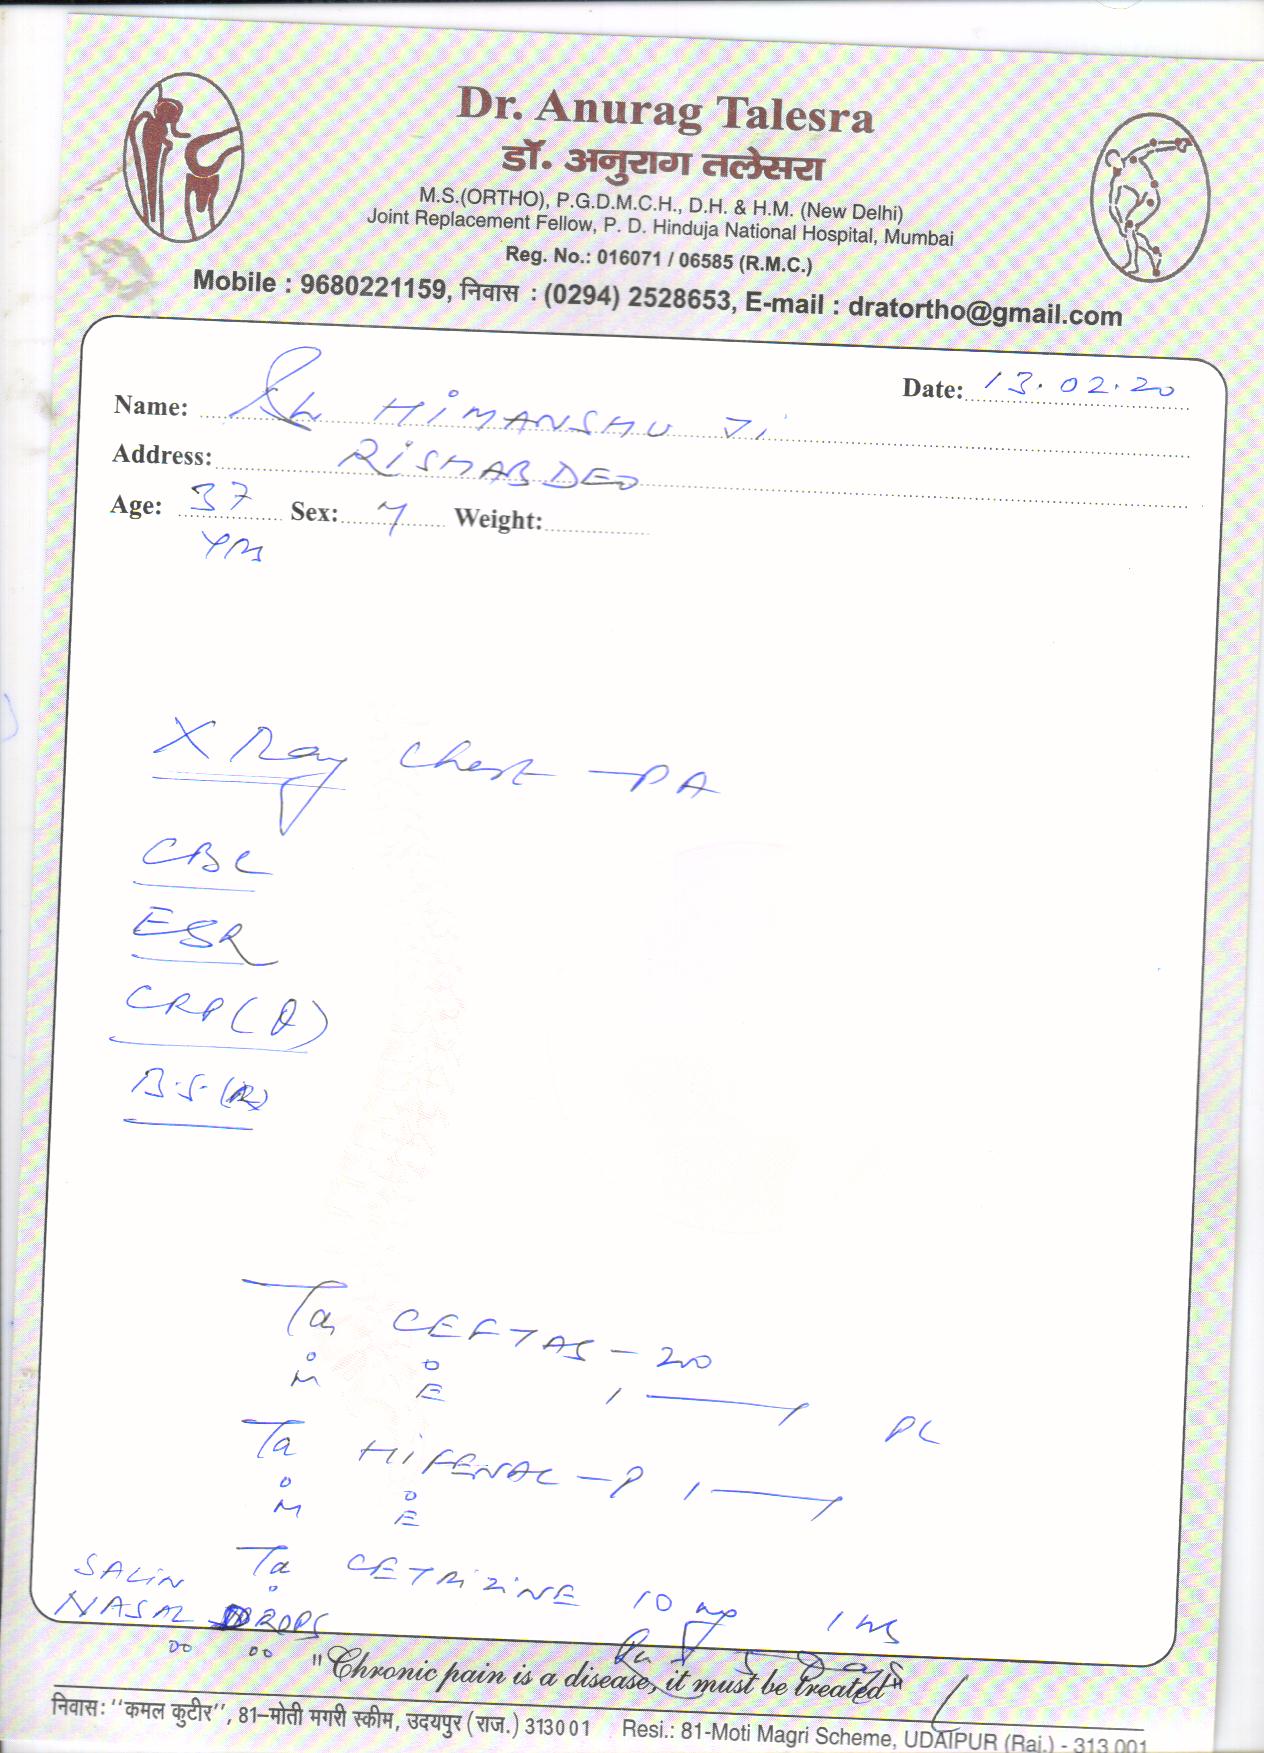 Dr. Anurag Talesra
डॉ. अनुराग तलेसरा
M.S.(ORTHO), P.G.D.M.C.H., D.H. & H.M. (New Delhi)
Joint Replacement Fellow, P. D. Hinduja National Hospital, Mumbai
Reg. No.: 016071 / 06585 (R.M.C.)
Mobile : 9680221159, निवास : (0294) 2528653, E-mail : dratortho@gmail.com
Date: 13.02.20
Name: Sh HIMANSHU Ji
Address: RISHABDEO
Age: 37 Sex: M Weight:
Yrs
X Ray Chest - PA
CBC
ESR
CRP (Q)
B.S. (R)
Ta CEFTAS - 200
M E 1
PC
Ta HIFENAC - P 1
M E
Ta CETRIZINE 10 mg 1 HS
SALIN
NASAL DROPS
5 Days
"Chronic pain is a disease, it must be treated"
निवास: "कमल कुटीर", 81-मोती मगरी स्कीम, उदयपुर (राज.) 313001 Resi.: 81-Moti Magri Scheme, UDAIPUR (Raj.) - 313 001